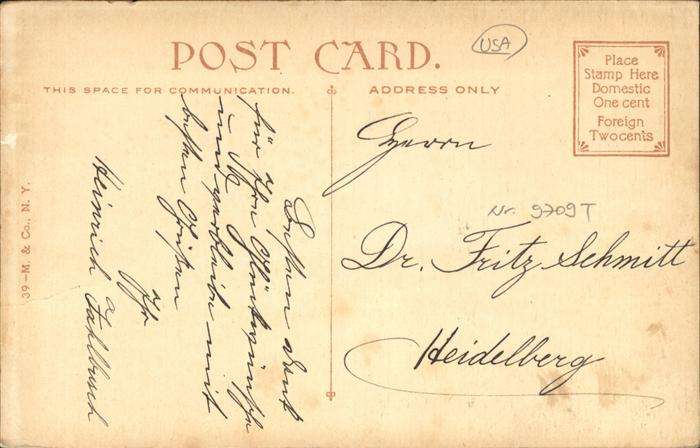 POST CARD.
USA
THIS SPACE FOR COMMUNICATION.
ADDRESS ONLY
Place
Stamp Here
Domestic
One cent
Foreign
Two cents
Besten Dank
für Ihre Glückwünsche
und verbleibe mit
besten Grüßen
Ihr
Heinrich Fahlbusch
Herrn
Nr. 9709 T
Dr. Fritz Schmitt
Heidelberg
39-M. & Co., N. Y.